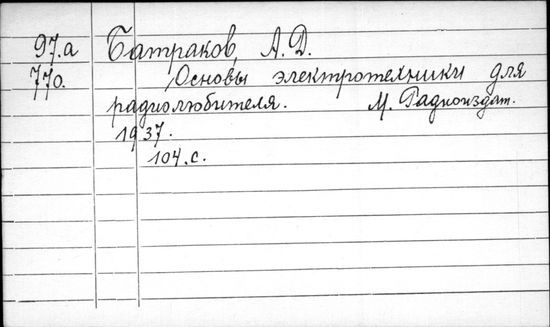 97.а Батраков, А.Д.
770. Основы электротехники для
радиолюбителя. М. Радиоиздат.
1937.
104.с.